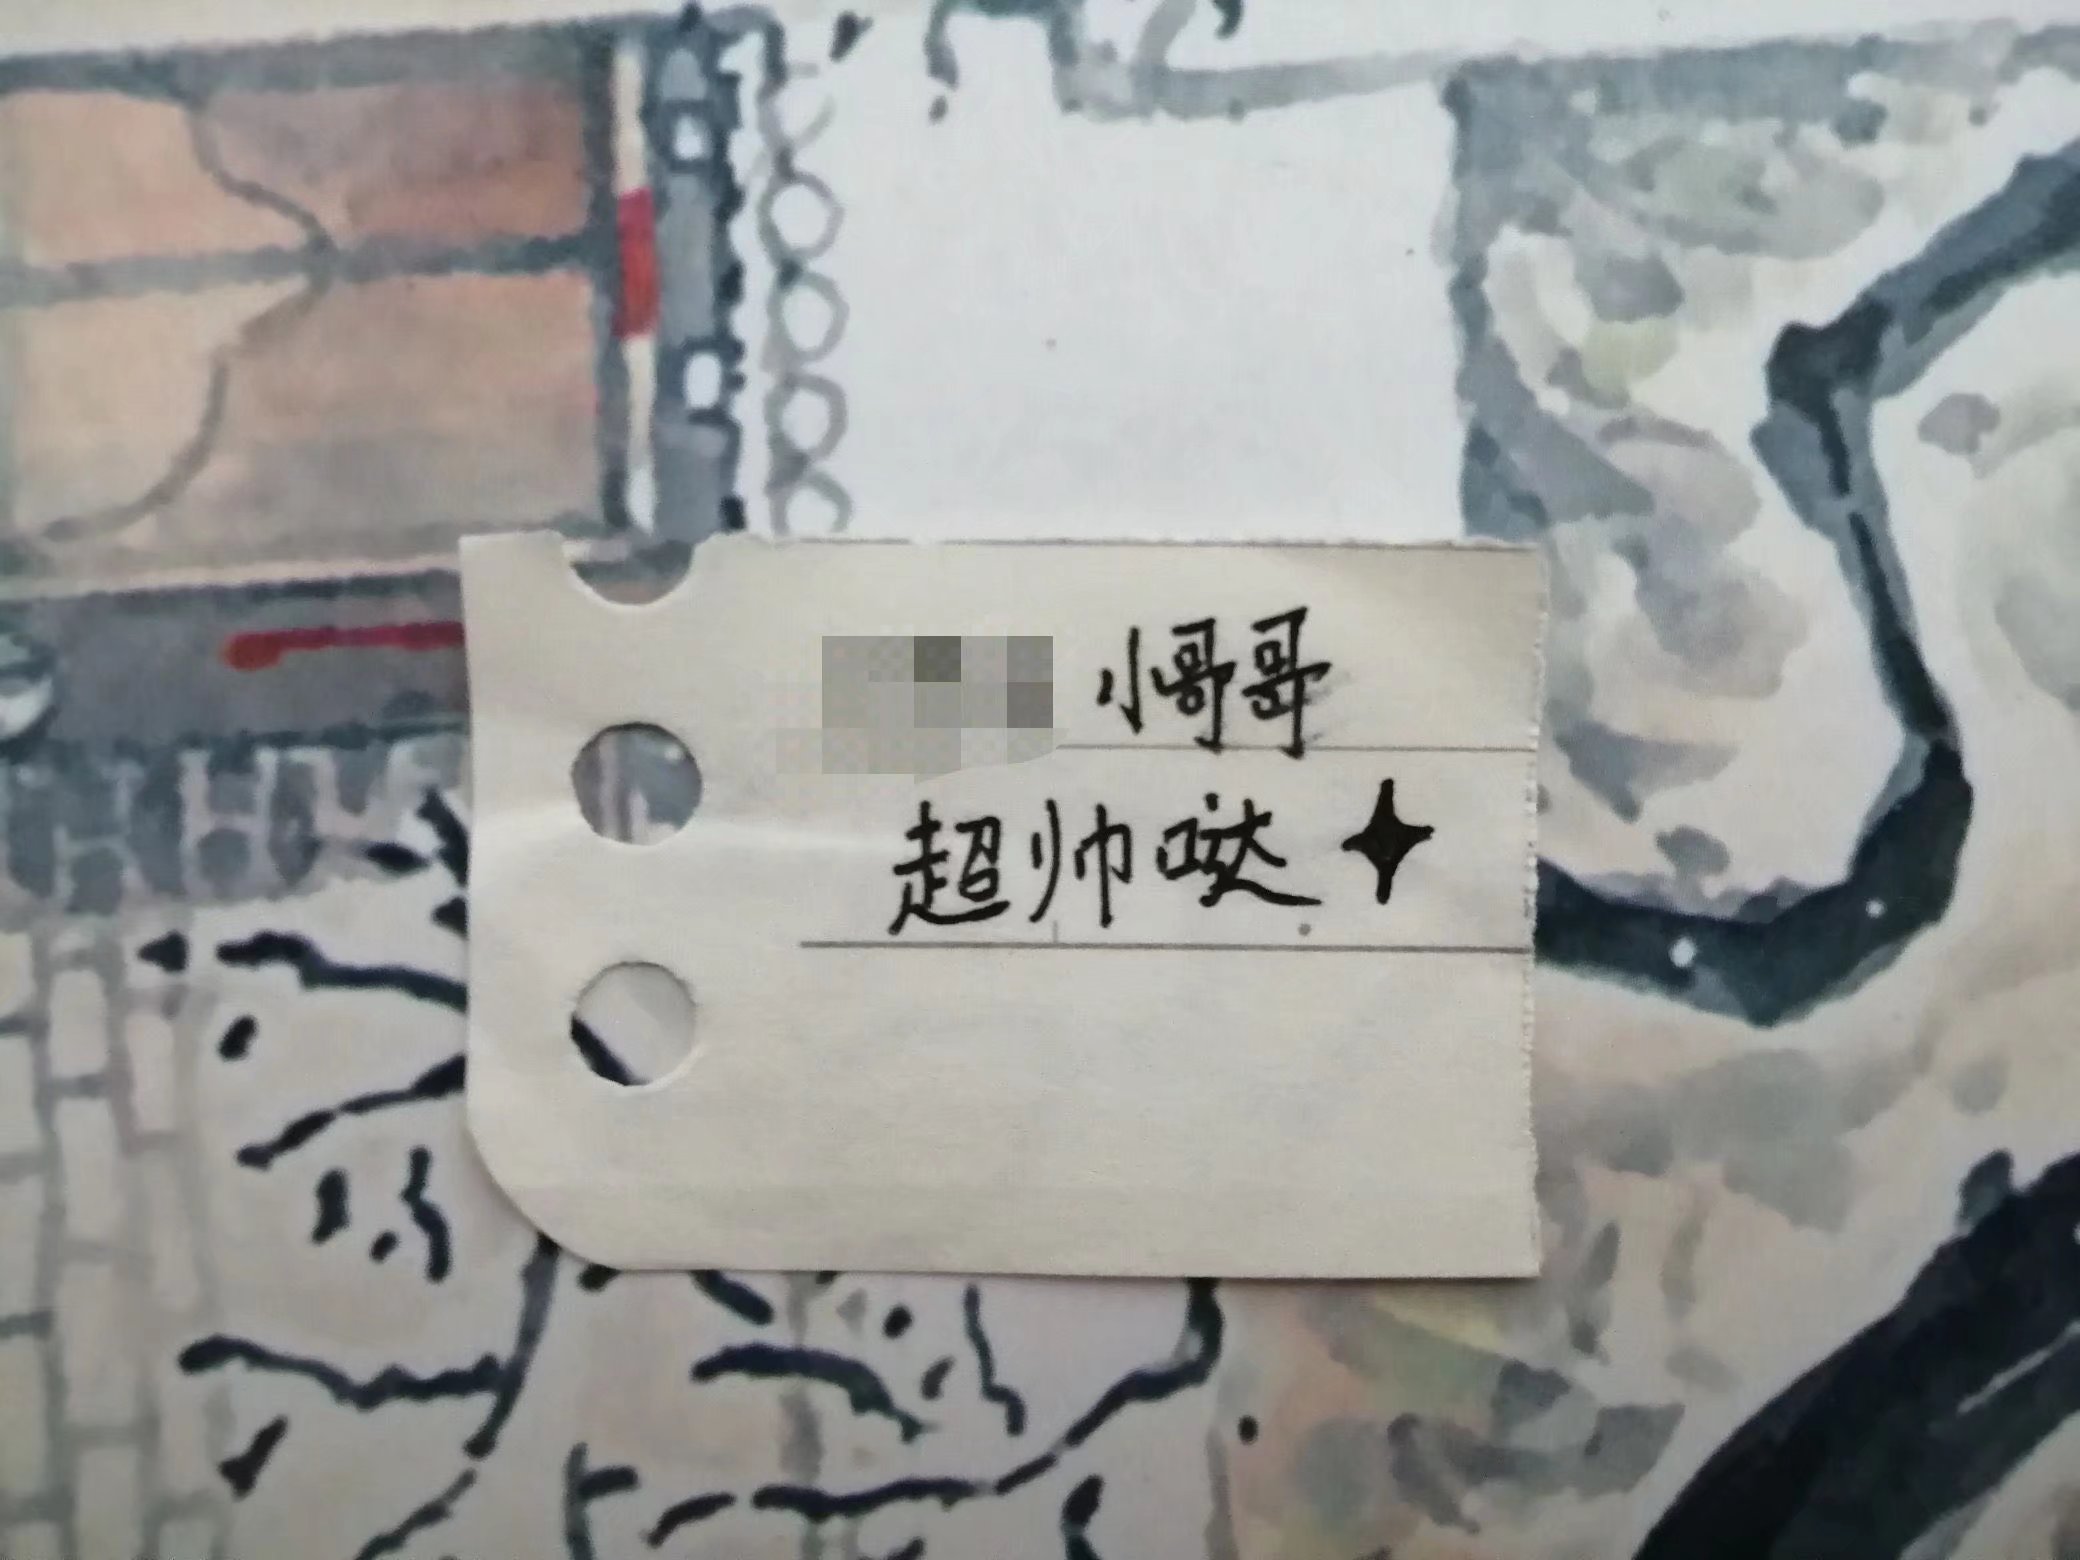 小哥哥
超帅哒